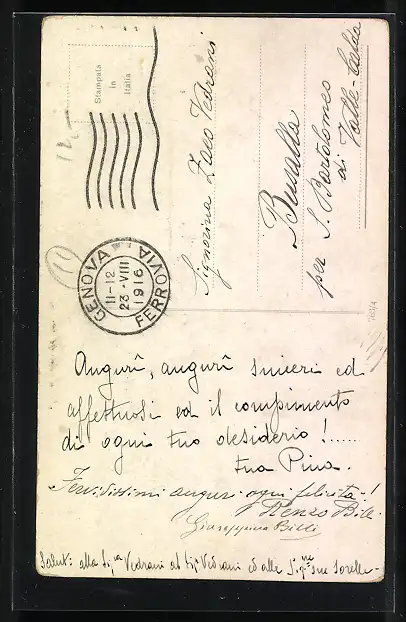 Stampata
in
Italia
GENOVA
11-12
23·VIII
1916
FERROVIA
Signorina Zaco Vedrani
Busalla
per S. Bartolomeo
di Valle-Calda
Augurî, augurî sinceri ed
affettuosi ed il compimento
di ogni tuo desiderio!......
tua Pina.
Fervidissimi auguri - ogni felicità!
Renzo Billi
Giuseppina Billi
Saluti alla Sig.ra Vedrani al Sig. Vedrani ed alle Sig.ne sue sorelle -